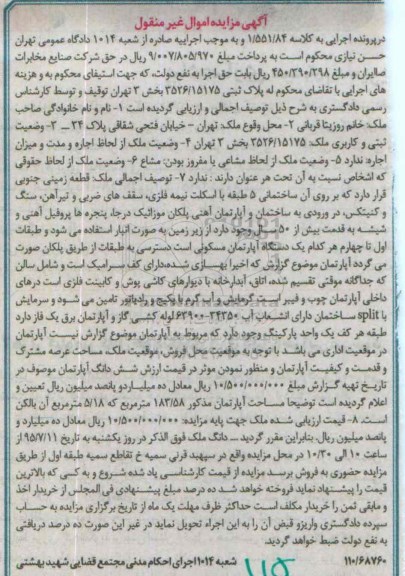 آگهی مزایده اموال غیر منقول
درپرونده اجرایی به کلاسه ۱/۵۵۱/۸۴ و به موجب اجراییه صادره از شعبه ۱۰۱۴ دادگاه عمومی تهران
حسن نیازی محکوم است به پرداخت مبلغ ۹/۰۰۷/۸۰۵/۹۷۰ ریال در حق شرکت صنایع مخابرات
صاایران و مبلغ ۴۵۰/۳۹۰/۲۹۸ ریال بابت حق اجرا به نفع دولت، که جهت استیفای محکوم به و هزینه
های اجرایی با تقاضای محکوم له پلاک ثبتی ۳۵۲۶/۱۵۱۷۵ بخش ۳ تهران توقیف و توسط کارشناس
رسمی دادگستری به شرح ذیل توصیف اجمالی و ارزیابی گردیده است ۱- نام و نام خانوادگی صاحب
ملک: خانم روزیتا قربانی ۲- محل وقوع ملک: تهران - خیابان فتحی شقاقی پلاک ۳۴ ــ ۳- وضعیت
ثبتی و کاربری ملک: ۳۵۲۶/۱۵۱۷۵ بخش ۳ تهران ۴- وضعیت ملک از لحاظ اجاره و مدت و میزان
اجاره: ندارد ۵- وضعیت ملک از لحاظ مشاعی یا مفروز بودن: مشاع ۶- وضعیت ملک از لحاظ حقوقی
که اشخاص نسبت به آن تحت هر عنوان دارند : ندارد ۷- توصیف اجمالی ملک: قطعه زمینی جنوبی
قرار دارد که بر روی آن ساختمانی ۵ طبقه با اسکلت نیمه فلزی، سقف های ضربی و تیرآهن، سنگ
و کنیتکس، در ورودی به ساختمان و آپارتمان آهنی پلکان موزائیک درجا، پنجره ها پروفیل آهنی و
شیشه به قدمت بیش از ۵۰ سال وجود دارد از زیر زمین به صورت انبار استفاده می شود و طبقات
اول تا چهارم هر کدام یک دستگاه آپارتمان مسکونی است دسترسی به طبقات از طریق پلکان صورت
می گردد آپارتمان موضوع گزارش که اخیرا بهسازی شده،دارای کف سرامیک است و شامل سالن
که جداگانه موقتی تقسیم شده، اتاق، آبدارخانه با دیوارهای کاشی پوش و کابینت فلزی است درهای
داخلی آپارتمان چوب و فیبر است گرمایش و آب گرم با پکیج و رادیاتور تامین می شود و سرمایش
با split ساختمان دارای انشعاب آب ۲۴۳۵۰-۶۳۹۰۰ لوله کشی گاز و آپارتمان برق یک فاز دارد
طبقه هر کف یک واحد پارکینگ وجود دارد که مربوط به آپارتمان موضوع گزارش نیست آپارتمان
در موقعیت اداری می باشد با توجه به موقعیت محل فروش، موقعیت ملک، مساحت عرصه مشترک
و قدمت و کیفیت آپارتمان و منظور نمودن موثر در قیمت ارزش شش دانگ آپارتمان موصوف در
تاریخ تهیه گزارش مبلغ ۱۰/۵۰۰/۰۰۰/۰۰۰ ریال معادل ده میلیاردو پانصد میلیون ریال تعیین و
اعلام گردیده است توضیحا مساحت آپارتمان مذکور ۱۸۳/۵۸ مترمربع که ۵/۱۸ مترمربع آن بالکن
است. ۸- قیمت ارزیابی شده ملک جهت پایه مزایده: ۱۰/۵۰۰/۰۰۰/۰۰۰ ریال معادل ده میلیارد و
پانصد میلیون ریال. بنابراین مقرر گردید ــ دانگ ملک فوق الذکر در روز یکشنبه به تاریخ ۹۵/۷/۱۱ از
ساعت ۱۰ الی ۱۰/۳۰ در محل مزایده واقع در سپهبد قرنی سمیه خ تقاطع سمیه طبقه اول از طریق
مزایده حضوری به فروش برسد مزایده از قیمت کارشناسی یاد شده شروع و به کسی که بالاترین
قیمت را پیشنهاد نماید فروخته خواهد شد ده درصد مبلغ پیشنهادی فی المجلس از خریدار اخذ
و مابقی ثمن را خریدار مکلف است حداکثر ظرف مهلت یک ماه از تاریخ برگزاری مزایده به حساب
سپرده دادگستری واریزو قبض آن را به این اجراء تحویل نماید در غیر این صورت ده درصد دریافتی
به نفع دولت ضبط خواهد گردید.
۱۱۰/۶۸۷۶۰ شعبه ۱۰۱۴ اجرای احکام مدنی مجتمع قضایی شهید بهشتی